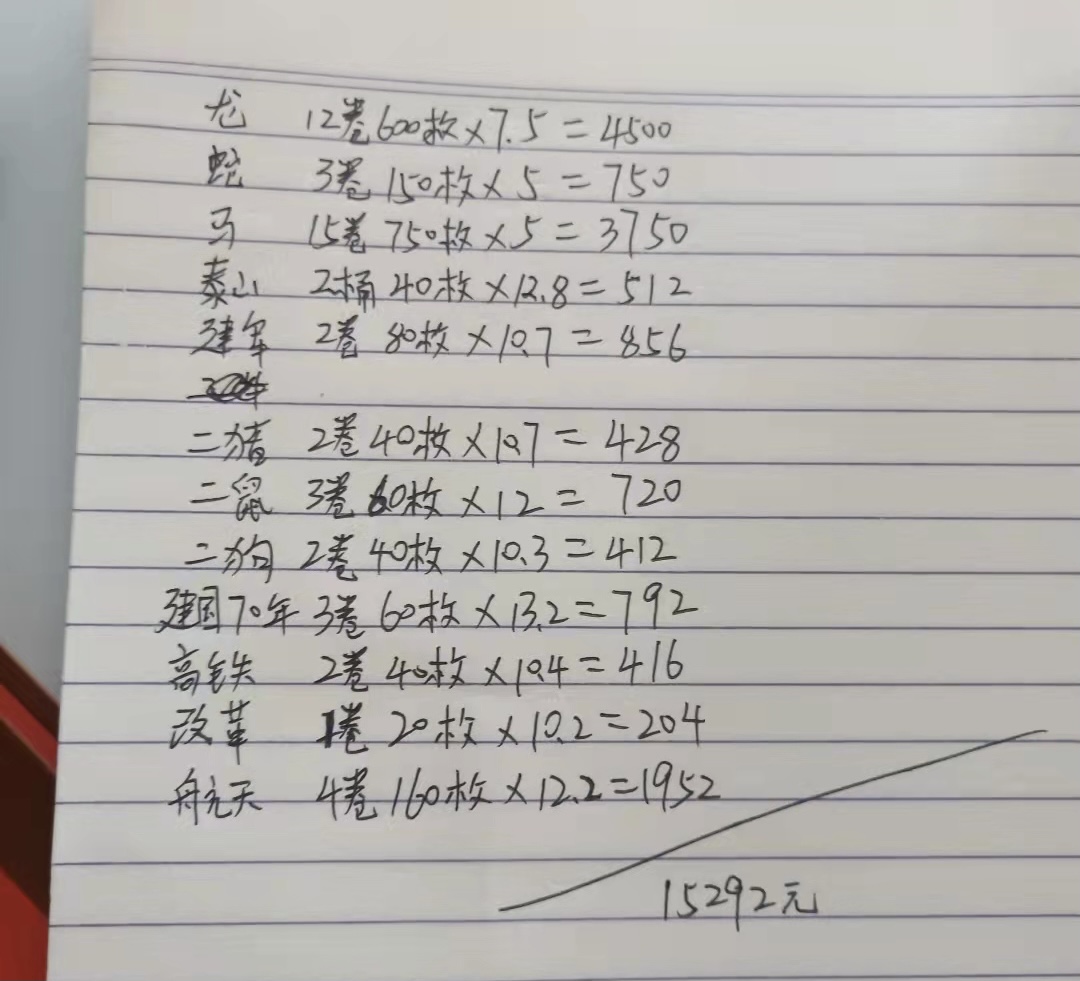 龙 12卷600枚×7.5=4500
蛇 3卷150枚×5=750
马 15卷750枚×5=3750
泰山 2桶40枚×12.8=512
建军 2卷80枚×10.7=856
二猪 2卷40枚×10.7=428
二鼠 3卷60枚×12=720
二狗 2卷40枚×10.3=412
建国70年 3卷60枚×13.2=792
高铁 2卷40枚×10.4=416
改革 1卷20枚×10.2=204
航天 4卷160枚×12.2=1952
15292元